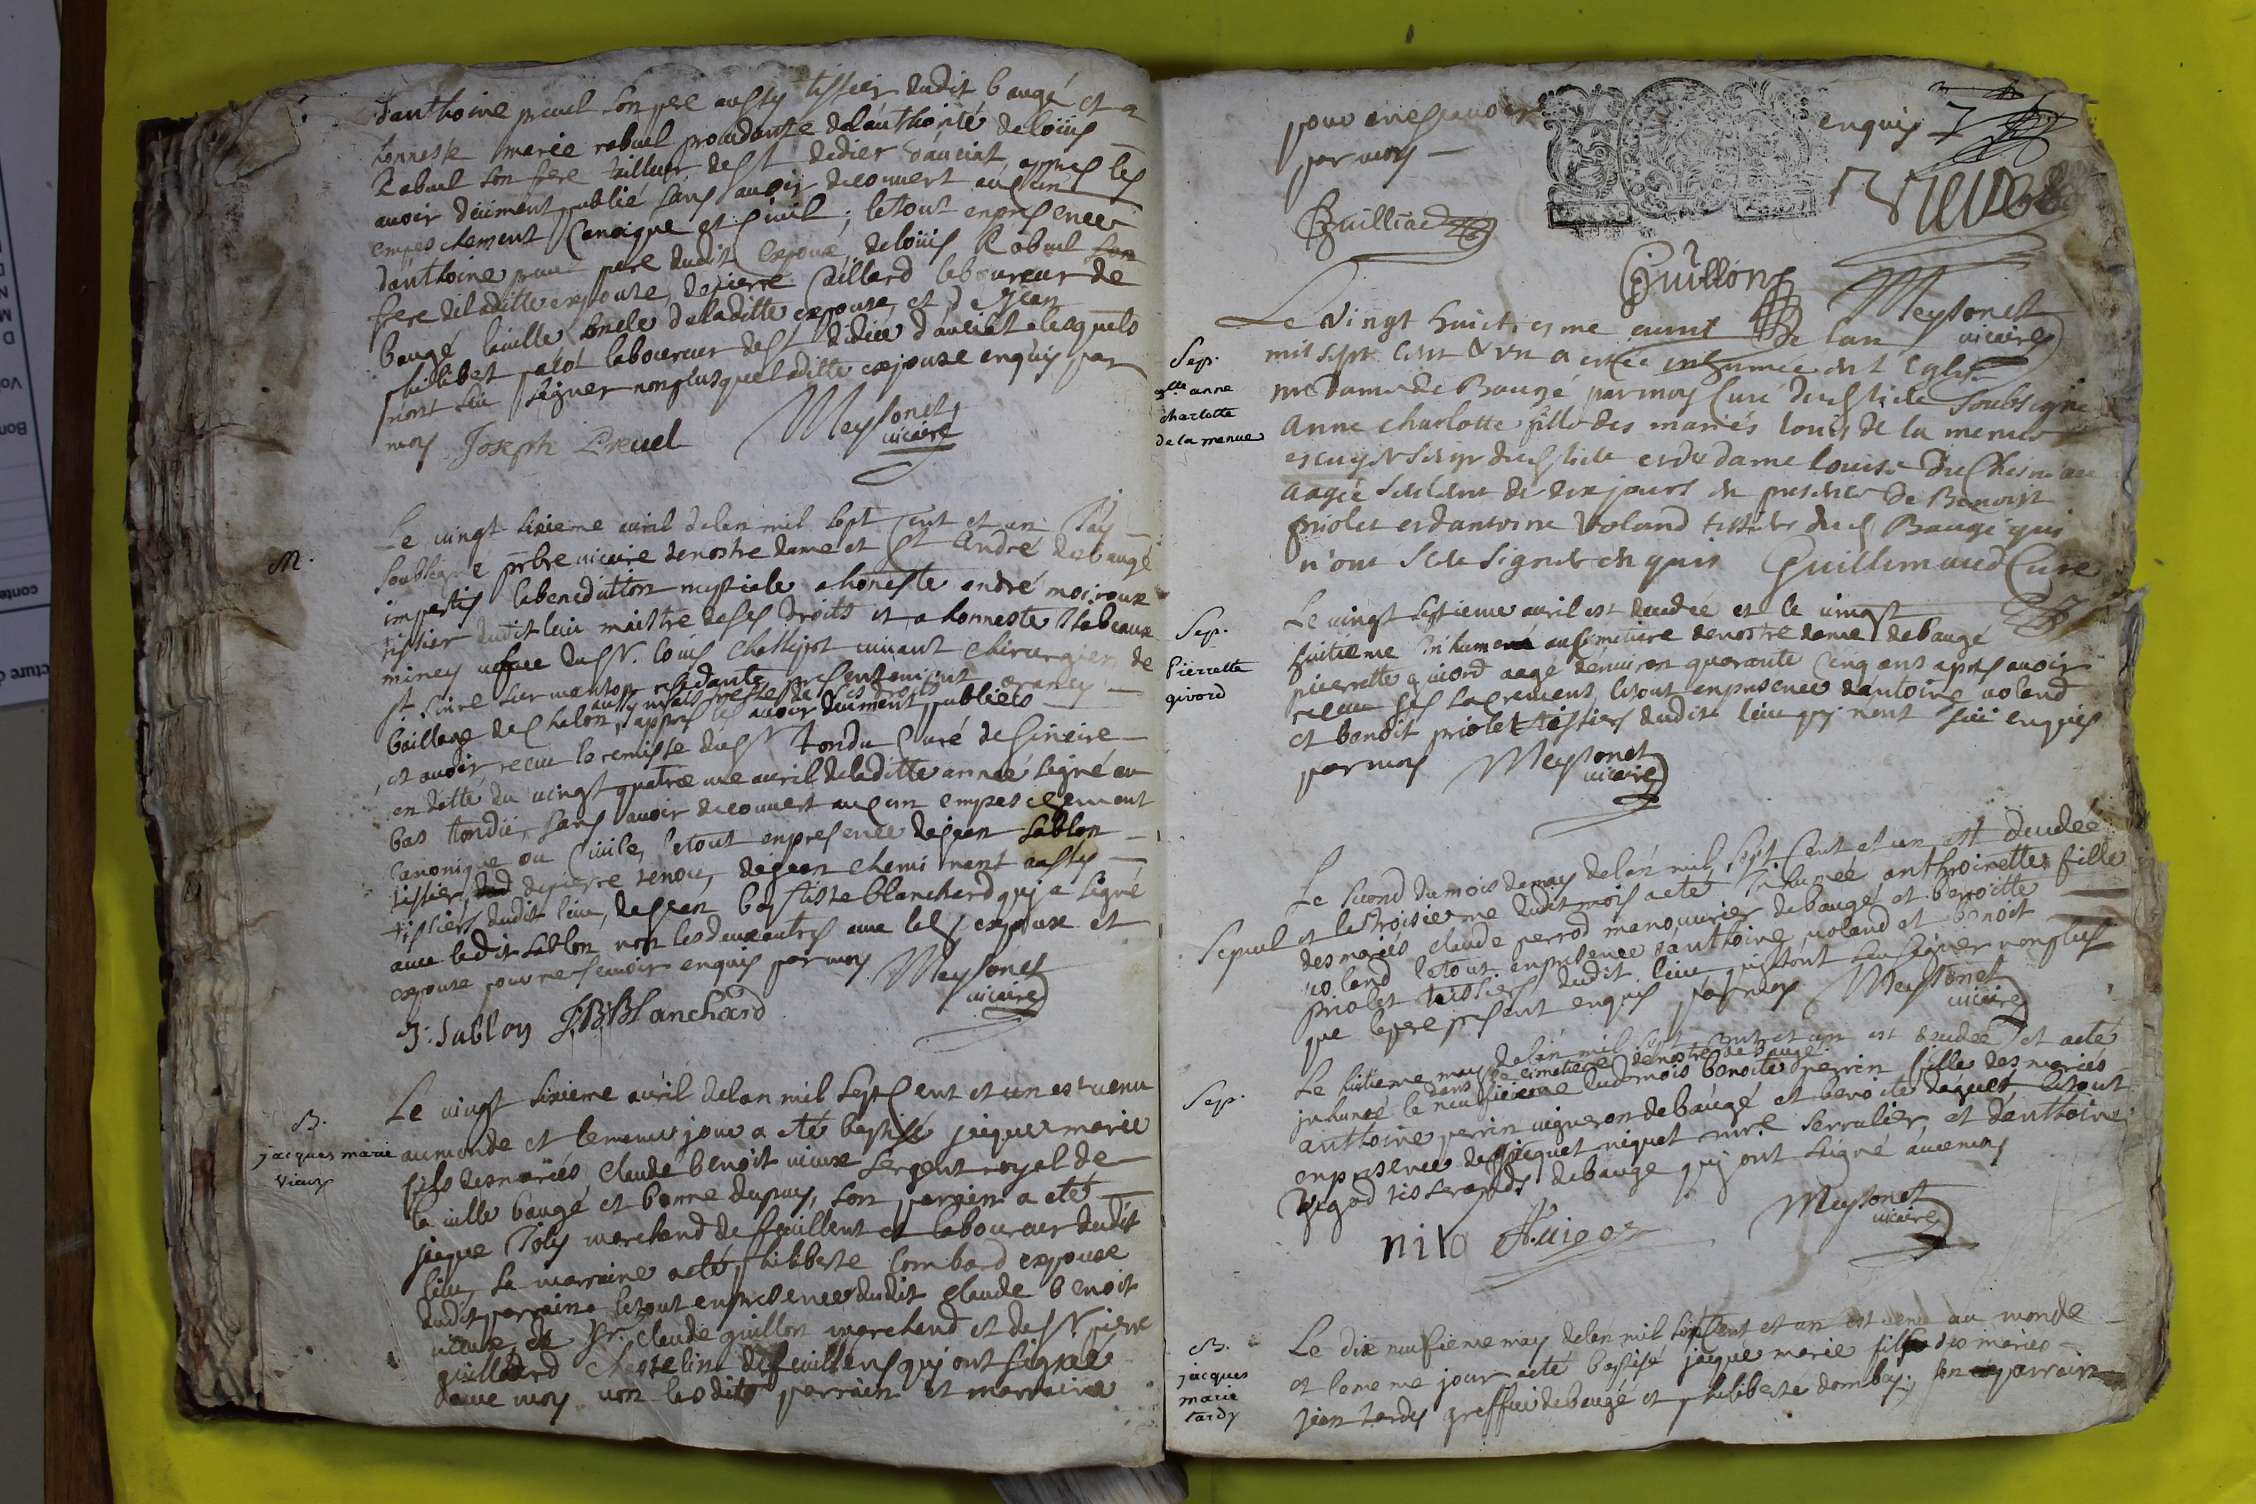 d'anthoine preuel son pere aussy tissier dudit baugé et a
honneste marie rabuel procedante de l'authorité de loüis
Rabuel son frere tailleur de St didier d'auciat apprés les
avoir düement publié sans avoir decouvert aucun
empeschement Canoique et Civil; le tout en presence
d'anthoine preuel pere dudit Expoux, de loüis Rabuel son
frere de laditte expouse, de pierre Caillard laboureur de
baugé laville oncle de laditte expouse et de Jean
philibet palot laboureur de St didier d'auciat lesquels
n'ont sçu signer non plus que laditte expouse enquis par
moy Joseph Preuel Meysonet
vicaire
M.
Le vingt sixieme avril de lan mil sept Cent et un J'ay
soubsigné pbre vicaire de nostre dame et St André de baugé
impartis la benediction nuptiale a honeste andré moiroux
tissier dudit lieu maistre de ses droits et a honneste Isabeaux
miney vefue du Sr. loüis Chattipot vivant Chirurgien de
st. Sire sur menton residante presentement a
aussy maistresse de ses droits
bailliage de Chalon, appres les avoir duement publiets
et avoir receu la remisse du Sr tondu Curé de Sineire
en datte du vingt quatreme avril de laditte année signé au
bas tondü, sans avoir decouvert aucun empeschement
Canonique ou Civile, le tout en presence de jean sablon
tissier, de pierre renou, de jean Cheminent aussy
tissiers dudit lieu, de jean baptiste blanchard qui a signé
avec ledit sablon, non les deux autres avec lesd expoux et
expouse pour ne scavoir enquis par moy. Meysonet
vicaire
J: Sablon J:B:Blanchard
B.
jacques marie
vieux
Le vingt sixieme avril de lan mil sept Cent et un est venu
au monde et le meme jour a eté baptisé jaque marie
fils des mariés Claude benoit vieux sergent royal de
la ville baugé et bonne dupuy, son parain a eté
jaque Joly marchand de feuillent et laboureur dudit
lieu, sa marraine a eté philiberte Combard expouse
dudit parrain, le tout en presence dudit Claude benoit
vieux, de Sr. Claude guillon marchand et de Sr pierre
guilliard Chastelin de feuillens qui ont signée
avec moy non lesdits perrain et marraine
pour ne scavoir enquis
par moy
Guilliard
Vieux
Guillon
Meysonet
vicaire
Sep.
dlle. anne
charlotte
de la menue
Le Vingt huictiesme avril de lan
mil sept cent & un a estée inhumée en l Eglise
nre dame de Baugé par moy Curé dud lieu soubsigné
Anne Charlotte fille des mariés louis de la menue
escuyer seigr dud lieu et de dame louise Du Chesne au
aagée seulem de dix jours en presence de Benoist
priolet et d'antoine Voland tissiers dud Baugé qui
n'ont sceu signer enquis Guillimaud Curé
Sep.
Pierrette
givord
Le vingt septieme avril est deudée et le vingt
huitieme inhumé au simetiere de nostre dame de baugé
pierrette givord aage d'environ quarante Cinq ans aprés avoir
receu ses sacrements, le tout en presence d'antoine voland
et benoit priolet tissiers dudit lieu qui n'ont sçu enquis
par moy Meysonet
vicaire
Sepul
Le second du mois de may de lan mil sept Cent et un est deudeé
et le troisieme dudit mois a eté inhumeé anthoinette fille
des mariés Claude perrod manouvrier de baugé et benoitte
voland le tout en presence d'anthoine voland et benoit
priolet tissiers dudit lieu qui n'ont sçu signer non plus
que le pere present enquis par moy Meysonet
vicaire
Sep.
Le huitieme may de lan mil sept cent et un est deudeé et a eté
dans le cimetiere de nostre de Baugé
inhumé le neufieme dud mois benoite perrin fille des mariés
anthoine perrin vigneron de baugé et benoite le tout
en presence de jacquet niquet mre serrulier, et d'anthoine
tisserands de baugé qui ont signé avec moy
Meysonet
vicaire
B.
jacques
marie
tardy
Le dix neufieme may de lan mil sept Cent et un est venu au monde
et le meme jour a eté baptisé jaque marie fils des mariés
jean tardy greffier de baugé et philiberte dombey, son parrain